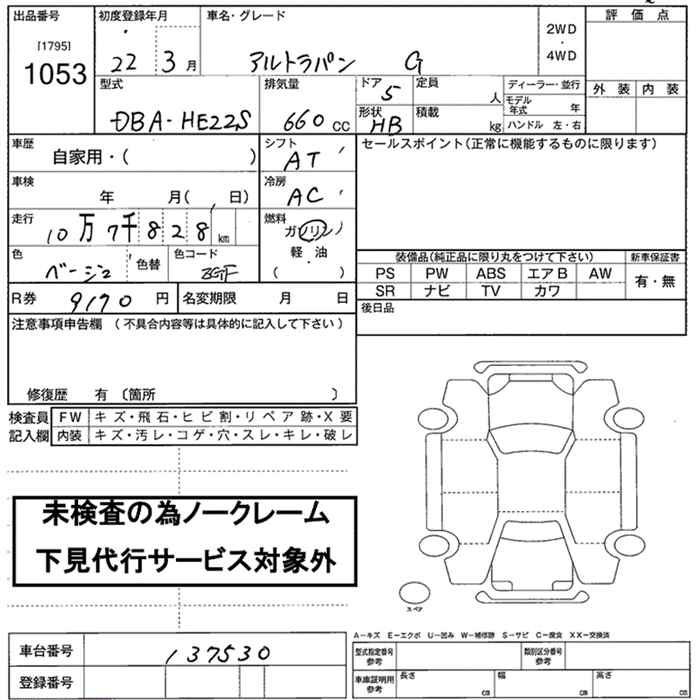 出品番号 初度登録年月 車名・グレード 評価点
[1795]
1053
22 3月 アルトラパン G
2WD
・
4WD
型式 排気量 ドア 5 定員 人 ディーラー・並行 外装 内装
DBA-HE22S 660cc 形状 HB 積載 kg モデル年式 年
ハンドル 左・右
車歴 自家用・( ) シフト AT セールスポイント(正常に機能するものに限ります)
車検 年 月( 日) 冷房 AC
走行 10万7千828km 燃料 ガソリン
軽・油
( ・ )
色 ベージュ 色替 色コード
装備品(純正品に限り丸をつけて下さい) 新車保証書
PS PW ABS エアB AW 有・無
SR ナビ TV カワ
R券 9170円 名変期限 月 日 後日品
注意事項申告欄 (不具合内容等は具体的に記入して下さい)
修復歴 有 (箇所 )
検査員 FW キズ・飛石・ヒビ割・リペア跡・X要
記入欄 内装 キズ・汚レ・コゲ・穴・スレ・キレ・破レ
未検査の為ノークレーム
下見代行サービス対象外
スペア
A−キズ E−エクボ U−凹み W−補修跡 S−サビ C−腐食 XX−交換済
車台番号 137530 型式指定番号 参考 類別区分番号 参考
登録番号 車庫証明用 参考 長さ cm 幅 cm 高さ cm